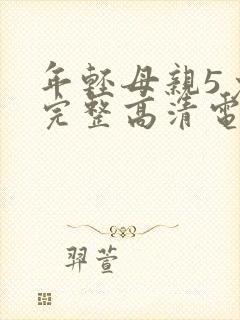 年輕母親5
完整高清電
羿萱